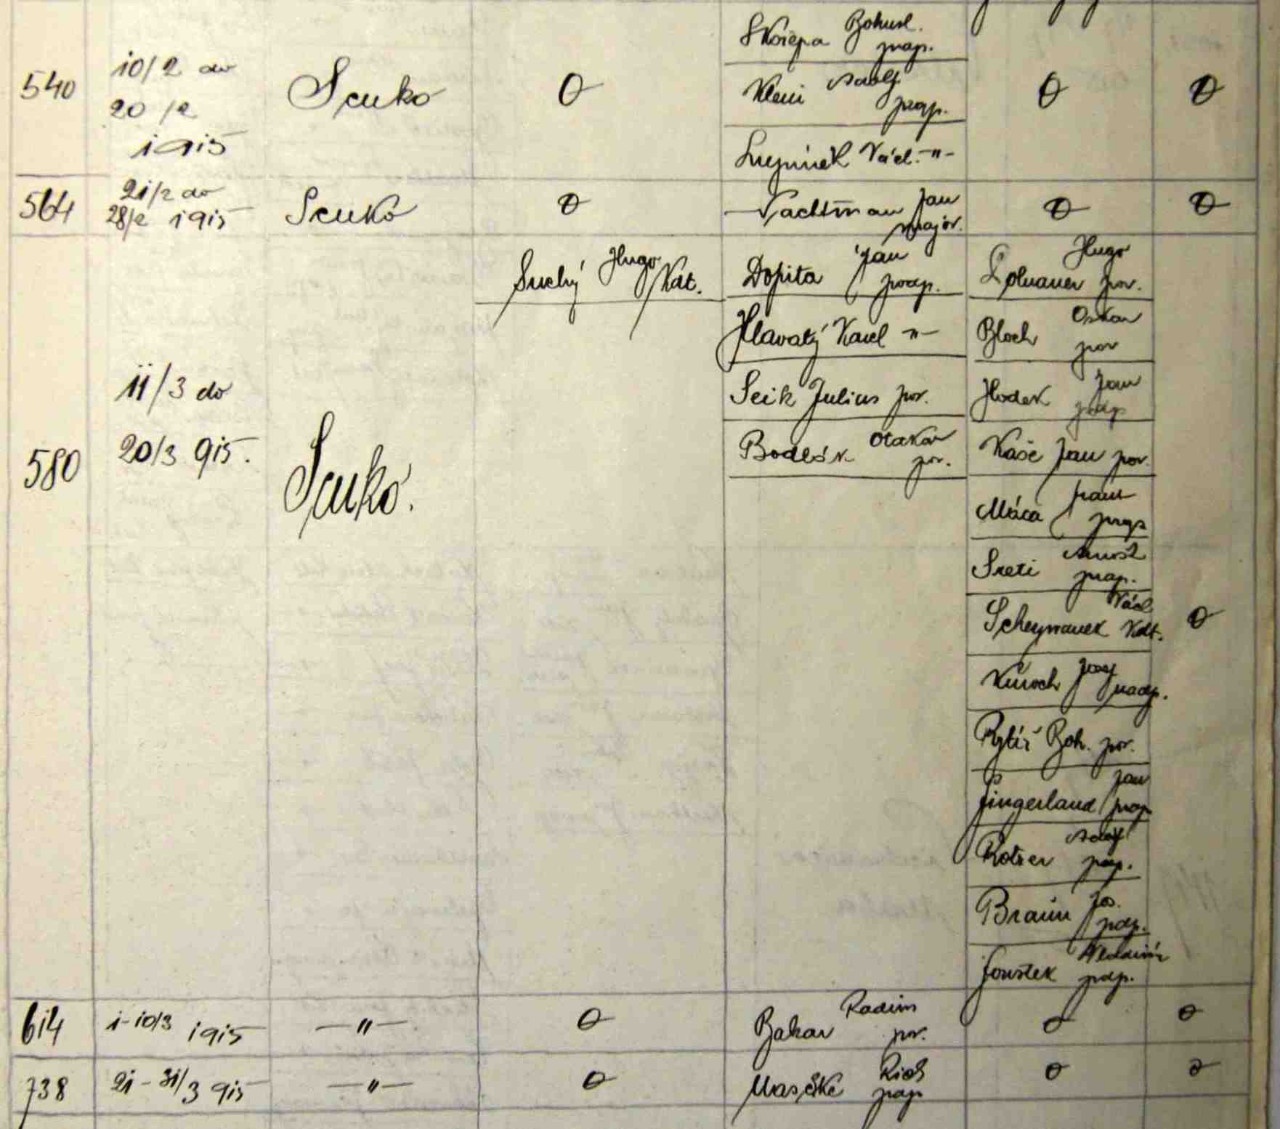 540
10/2 do
20/2
1915
Scuko
0
Skořepa Bohusl.
prap.
Klein Adolf
prap.
Václ. -"-
0
0
564
21/2 do
28/2 1915
Scukó
0
Nachtman Jan
major.
0
0
580
11/3 do
20/3 915.
Scukó.
Suchý Hugo/Kdt.
Dopita Jan
praep.
Hlavatý Karel -"-
Seik Julius por.
Bodlák Otakar
por.
Hugo
por.
Bloch Oskar
por
Hodek Jan
prap
Kaše Jan por.
Máca Frant
prap
Sretí Arnošt
prap.
Scheynauek Václ.
Kdt.
Josef
nadp.
Rytíř Boh. por.
Jingerland Jan
prap
Rotter Adolf
prap.
Braun Jos.
podp.
Foustek Vladimír
podp.
0
614
1-10/3 1915
-"-
0
Bakar Radim
por.
0
0
738
21-31/3 915
-"-
0
Maschke Rich
prap
0
0